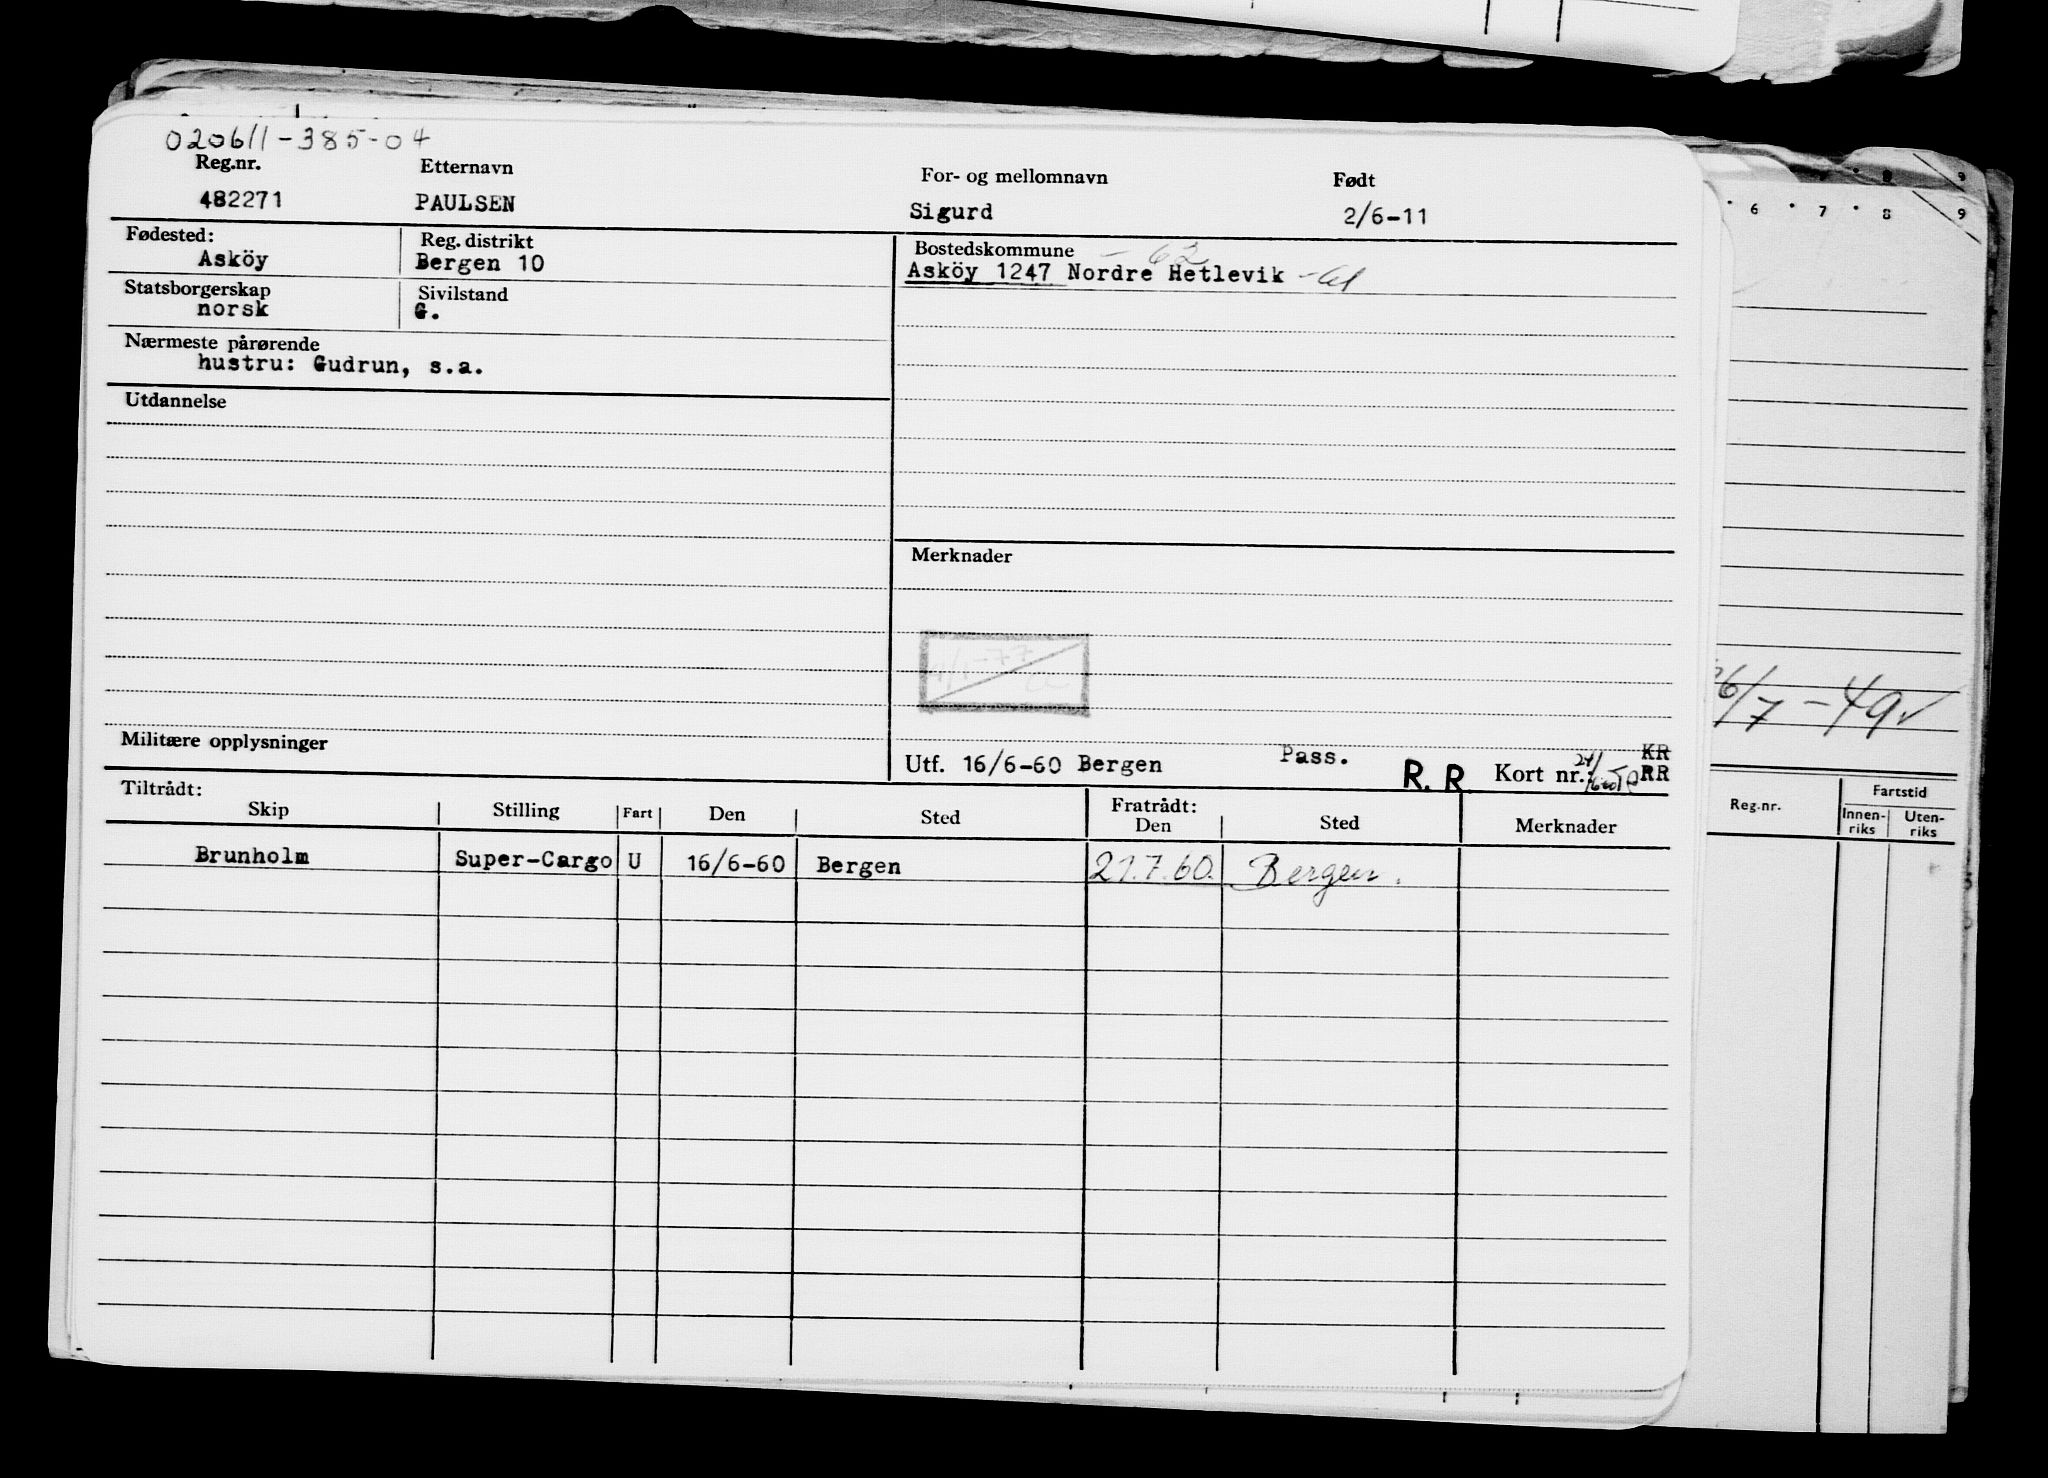 020611-385-04
Reg.nr. Etternavn For- og mellomnavn Født
482271 PAULSEN Sigurd 2/6-11
Fødested: Reg. distrikt Bostedskommune - 62
Asköy Bergen 10 Asköy 1247 Nordre Hetlevik - 61
Statsborgerskap Sivilstand
norsk G.
Nærmeste pårørende
hustru: Gudrun, s.a.
Utdannelse
Merknader
Militære opplysninger
Utf. 16/6-60 Bergen Pass. R. R. Kort nr.: KR
RR
Tiltrådt: Fratrådt:
Skip Stilling Fart Den Sted Den Sted Merknader
Brunholm Super-Cargo U 16/6-60 Bergen 21.7.60. Bergen.
6 7 8 9
8 9
6/7-49
Reg.nr. Fartstid
Innen-
riks Uten-
riks